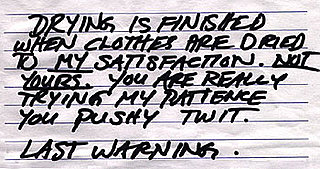 DRYING IS FINISHED
WHEN CLOTHES ARE DRIED
TO MY SATISFACTION. NOT
YOURS. YOU ARE REALLY
TRYING MY PATIENCE
YOU PUSHY TWIT.
LAST WARNING.